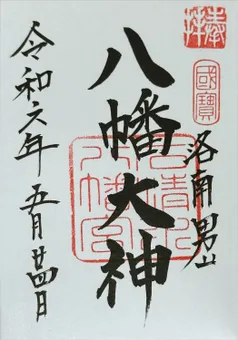 奉拝
國寶
洛南男山
八幡大神
石清水八幡宮
令和六年五月廿四日